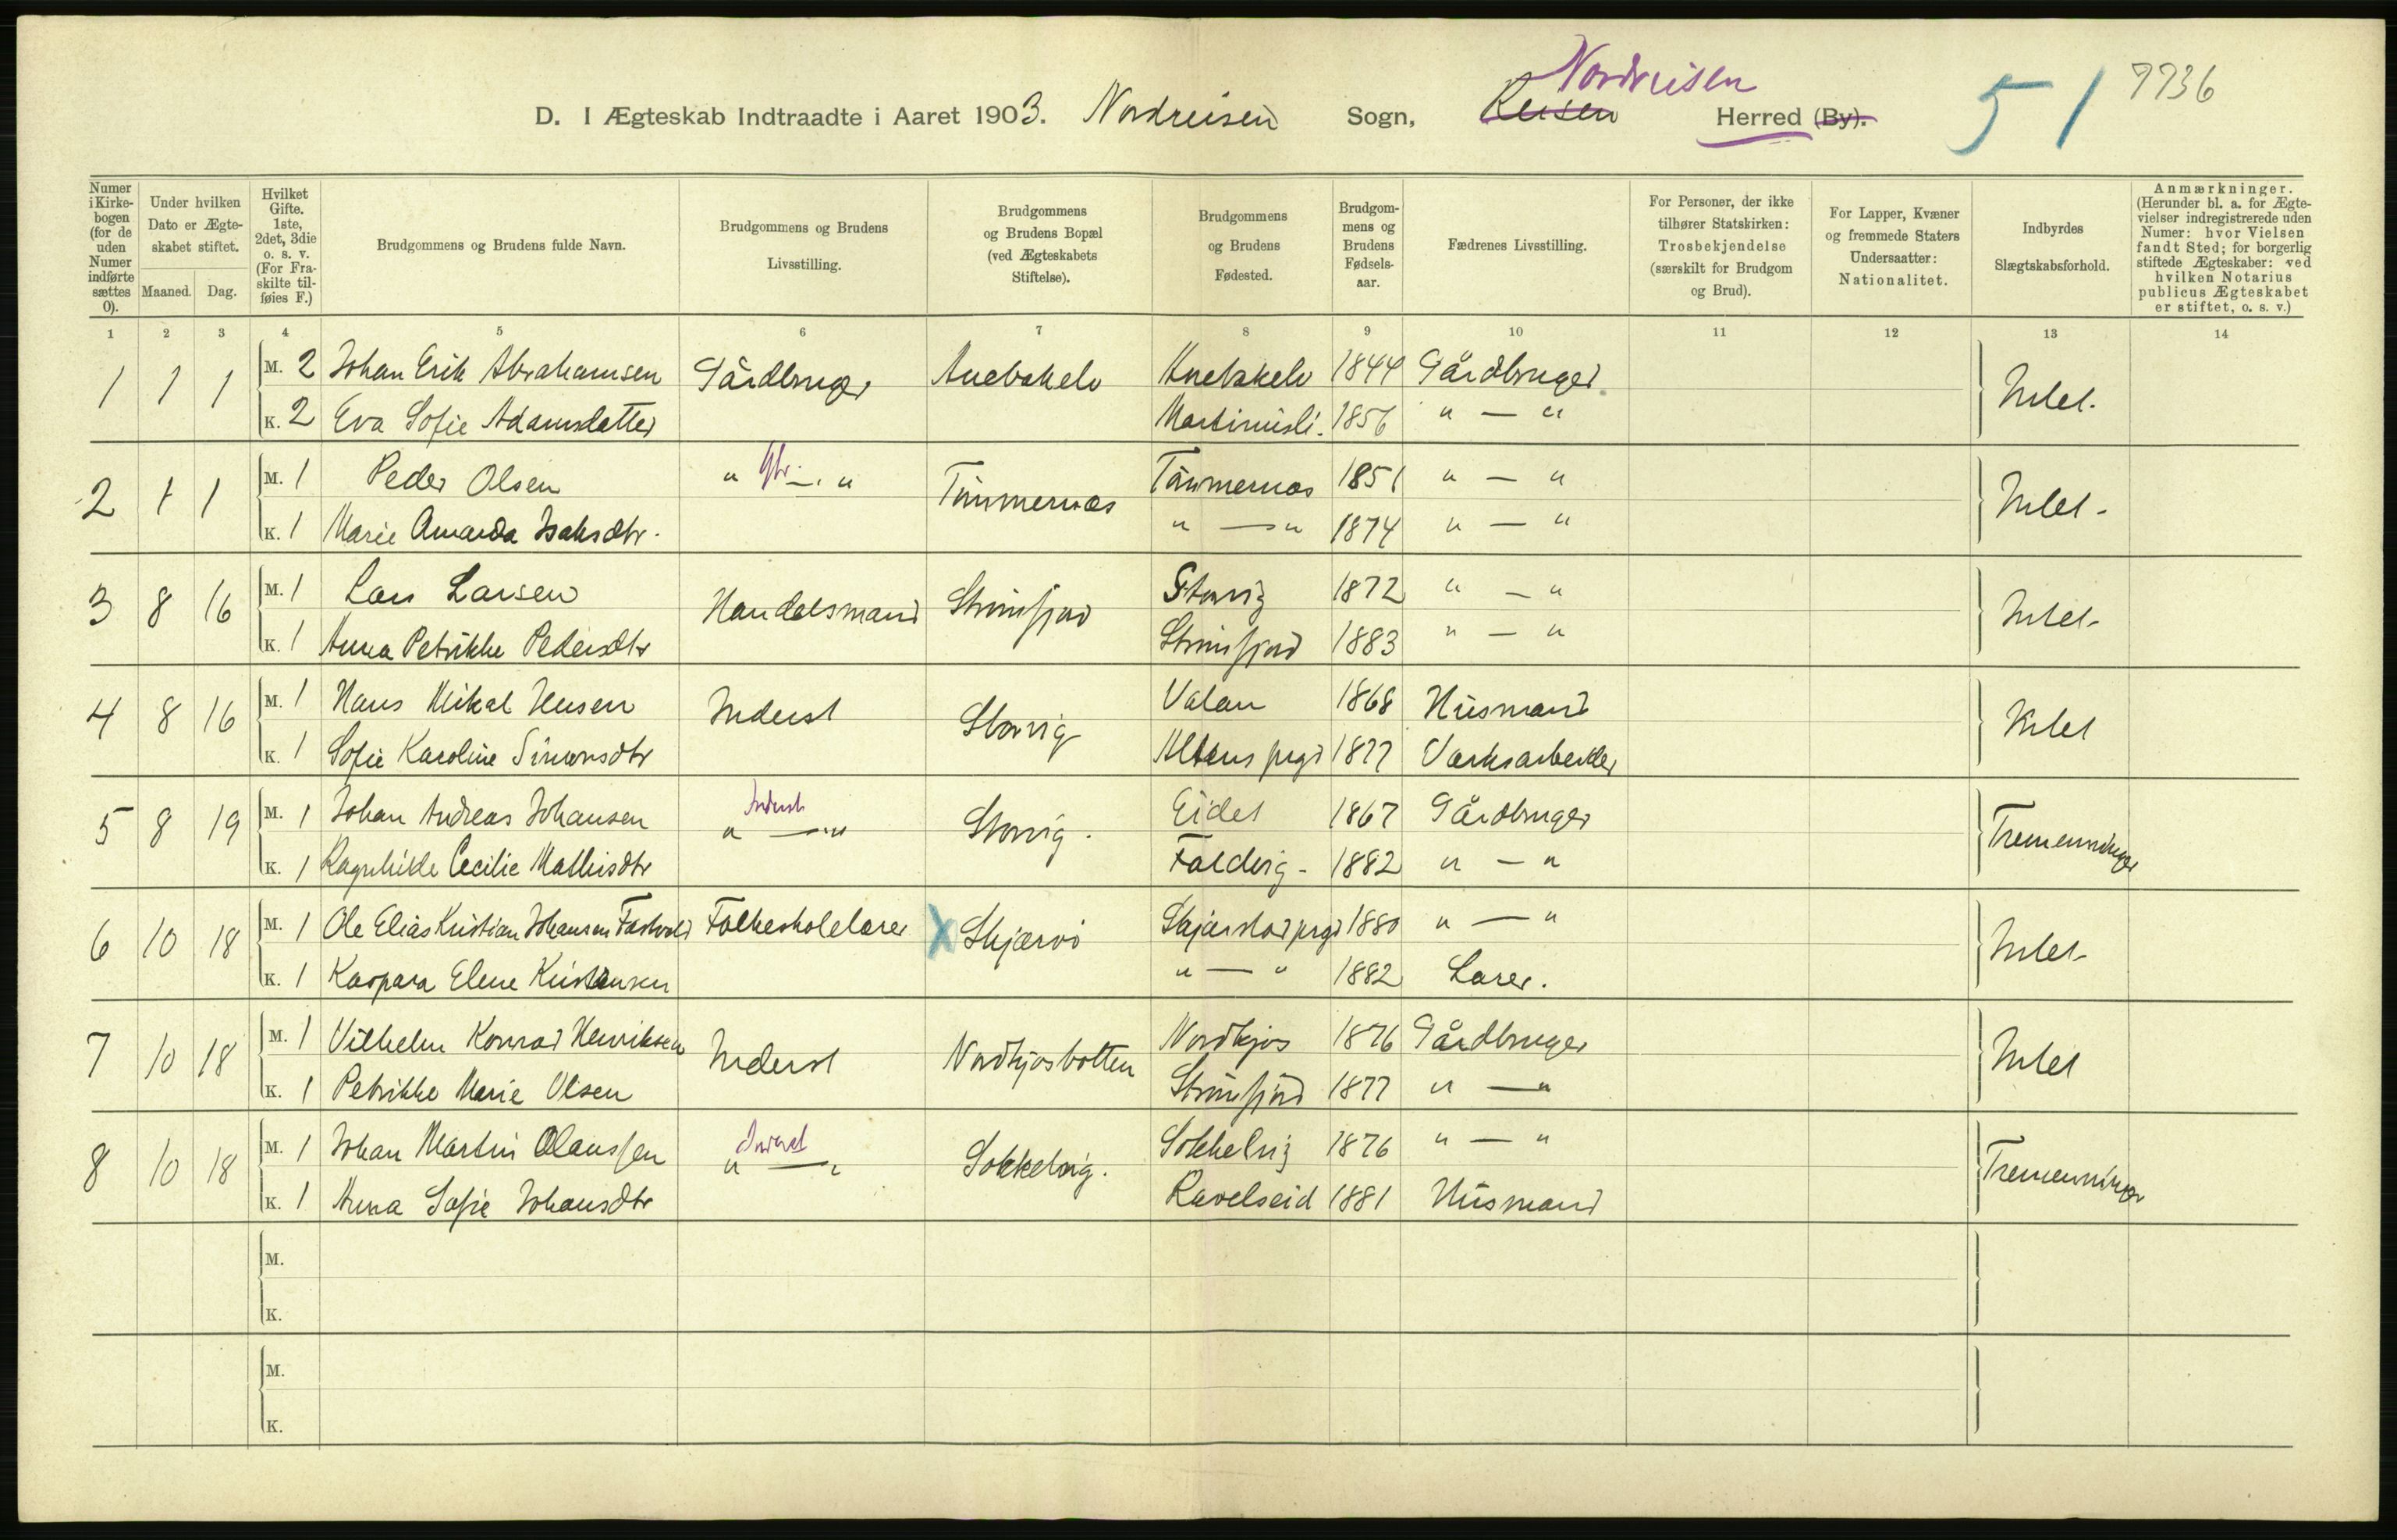 Nordreisen
51 7736
D. I Ægteskab Indtraadte i Aaret 1903. Nordreisen Sogn, Reisen Herred (By).
Numer i Kirkebogen (for de uden Numer indførte sættes 0).
Under hvilken Dato er Ægteskabet stiftet.
Maaned. Dag.
Hvilket Gifte. 1ste, 2det, 3die o. s. v. (For Fraskilte tilføies F.)
Brudgommens og Brudens fulde Navn.
Brudgommens og Brudens Livsstilling.
Brudgommens og Brudens Bopæl (ved Ægteskabets Stiftelse).
Brudgommens og Brudens Fødested.
Brudgommens og Brudens Fødselsaar.
Fædrenes Livsstilling.
For Personer, der ikke tilhører Statskirken: Trosbekjendelse (særskilt for Brudgom og Brud).
For Lapper, Kvæner og fremmede Staters Undersaatter: Nationalitet.
Indbyrdes Slægtskabsforhold.
Anmærkninger. (Herunder bl. a. for Ægtevielser indregistrerede uden Numer: hvor Vielsen fandt Sted; for borgerlig stiftede Ægteskaber: ved hvilken Notarius publicus Ægteskabet er stiftet, o. s. v.)
1 2 3 4 5 6 7 8 9 10 11 12 13 14
1 1 1 M. 2 Johan Erik Abrahamsen Gårdbruger 1844 Gårdbruger Intet.
K. 2 Eva Sofie Adamsdatter 1856 " — "
2 1 1 M. 1 Peder Olsen " Gbr. — " Tømmernæs Tømmernæs 1851 " — " Intet -
K. 1 Marie Amanda Isaksdtr. " — " 1874 " — "
3 8 16 M. 1 Lars Larsen Handelsmand Straumfjord Storvig 1872 " — " Intet -
K. 1 Anna Petrikke Pedersdtr Straumfjord 1883 " — "
4 8 16 M. 1 Hans Mikal Jensen Inderst Storvig Valan 1868 Husmand Intet
K. 1 Sofie Karoline Simonsdtr Altens prgd 1877 Værksarbeider
5 8 19 M. 1 Johan Andreas Johansen Inderst " — " Storvig. Eidet 1867 Gårdbruger Tremenninger
K. 1 Ragnhilde Cecilie Mathisdtr Faldvig - 1882 " — "
6 10 18 M. 1 Ole Elias Kristian Johansen Folkeskolelærer X Skjærvø Skjærstad prgd 1880 " — " Intet -
K. 1 Kaspara Elene Kristensen " — " 1882 Lærer.
7 10 18 M. 1 Vilhelm Konrad Henriksen Inderst Nordkjosbotten Nordkjos 1876 Gårdbruger Intet
K. 1 Petrikke Marie Olsen Straumfjord 1877 " — "
8 10 18 M. 1 Johan Martin Olaussen Inderst " — " Sokkelvig. Sokkelvig 1876 " — " Tremenninger
K. 1 Anna Sofie Johansdtr Ravelseid 1881 Husmand
M.
K.
M.
K.